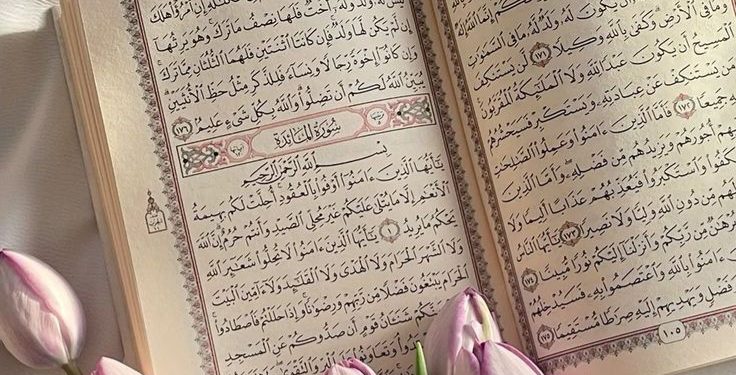 يَكُونَ لَهُۥ وَلَدٌ لَّهُۥ مَا فِي ٱلسَّمَٰوَٰتِ
وَمَا فِي ٱلْأَرْضِ وَكَفَىٰ بِٱللَّهِ وَكِيلًا ١٧١ لَّن يَسْتَنكِفَ
ٱلْمَسِيحُ أَن يَكُونَ عَبْدًا لِّلَّهِ وَلَا ٱلْمَلَٰٓئِكَةُ ٱلْمُقَرَّبُونَ
يَسْتَنكِفْ عَنْ عِبَادَتِهِۦ وَيَسْتَكْبِرْ فَسَيَحْشُرُهُمْ
جَمِيعًا ١٧٢ فَأَمَّا ٱلَّذِينَ ءَامَنُوا۟ وَعَمِلُوا۟ ٱلصَّٰلِحَٰتِ
أُجُورَهُمْ وَيَزِيدُهُم مِّن فَضْلِهِۦ وَأَمَّا ٱلَّذِينَ
وَٱسْتَكْبَرُوا۟ فَيُعَذِّبُهُمْ عَذَابًا أَلِيمًا وَلَا
لَهُم مِّن دُونِ ٱللَّهِ وَلِيًّا وَلَا نَصِيرًا ١٧٣ يَٰٓأَيُّهَا ٱلنَّاسُ
بُرْهَٰنٌ مِّن رَّبِّكُمْ وَأَنزَلْنَآ إِلَيْكُمْ نُورًا مُّبِينًا ١٧٤
ءَامَنُوا۟ بِٱللَّهِ وَٱعْتَصَمُوا۟ بِهِۦ فَسَيُدْخِلُهُمْ
وَفَضْلٍ وَيَهْدِيهِمْ إِلَيْهِ صِرَٰطًا مُّسْتَقِيمًا ١٧٥
١٠٥
وَلَدٌ وَلَهُۥٓ أُخْتٌ فَلَهَا نِصْفُ مَا تَرَكَ وَهُوَ يَرِثُهَآ
إِن لَّمْ يَكُن لَّهَا وَلَدٌ فَإِن كَانَتَا ٱثْنَتَيْنِ فَلَهُمَا ٱلثُّلُثَانِ مِمَّا تَرَكَ
وَإِن كَانُوٓا۟ إِخْوَةً رِّجَالًا وَنِسَآءً فَلِلذَّكَرِ مِثْلُ حَظِّ ٱلْأُنثَيَيْنِ
يُبَيِّنُ ٱللَّهُ لَكُمْ أَن تَضِلُّوا۟ وَٱللَّهُ بِكُلِّ شَىْءٍ عَلِيمٌ ١٧٦
سُورَةُ المَائِدَةِ
بِسْمِ ٱللَّهِ ٱلرَّحْمَٰنِ ٱلرَّحِيمِ
يَٰٓأَيُّهَا ٱلَّذِينَ ءَامَنُوٓا۟ أَوْفُوا۟ بِٱلْعُقُودِ أُحِلَّتْ لَكُم بَهِيمَةُ
ٱلْأَنْعَٰمِ إِلَّا مَا يُتْلَىٰ عَلَيْكُمْ غَيْرَ مُحِلِّى ٱلصَّيْدِ وَأَنتُمْ حُرُمٌ إِنَّ ٱللَّهَ
يَحْكُمُ مَا يُرِيدُ ١ يَٰٓأَيُّهَا ٱلَّذِينَ ءَامَنُوا۟ لَا تُحِلُّوا۟ شَعَٰٓئِرَ ٱللَّهِ
وَلَا ٱلشَّهْرَ ٱلْحَرَامَ وَلَا ٱلْهَدْىَ وَلَا ٱلْقَلَٰٓئِدَ وَلَآ ءَآمِّينَ ٱلْبَيْتَ
ٱلْحَرَامَ يَبْتَغُونَ فَضْلًا مِّن رَّبِّهِمْ وَرِضْوَٰنًا وَإِذَا حَلَلْتُمْ فَٱصْطَادُوا۟
شَنَـَٔانُ قَوْمٍ أَن صَدُّوكُمْ عَنِ ٱلْمَسْجِدِ
وَتَعَاوَنُوا۟ عَلَى ٱلْبِرِّ وَٱلتَّقْوَىٰ